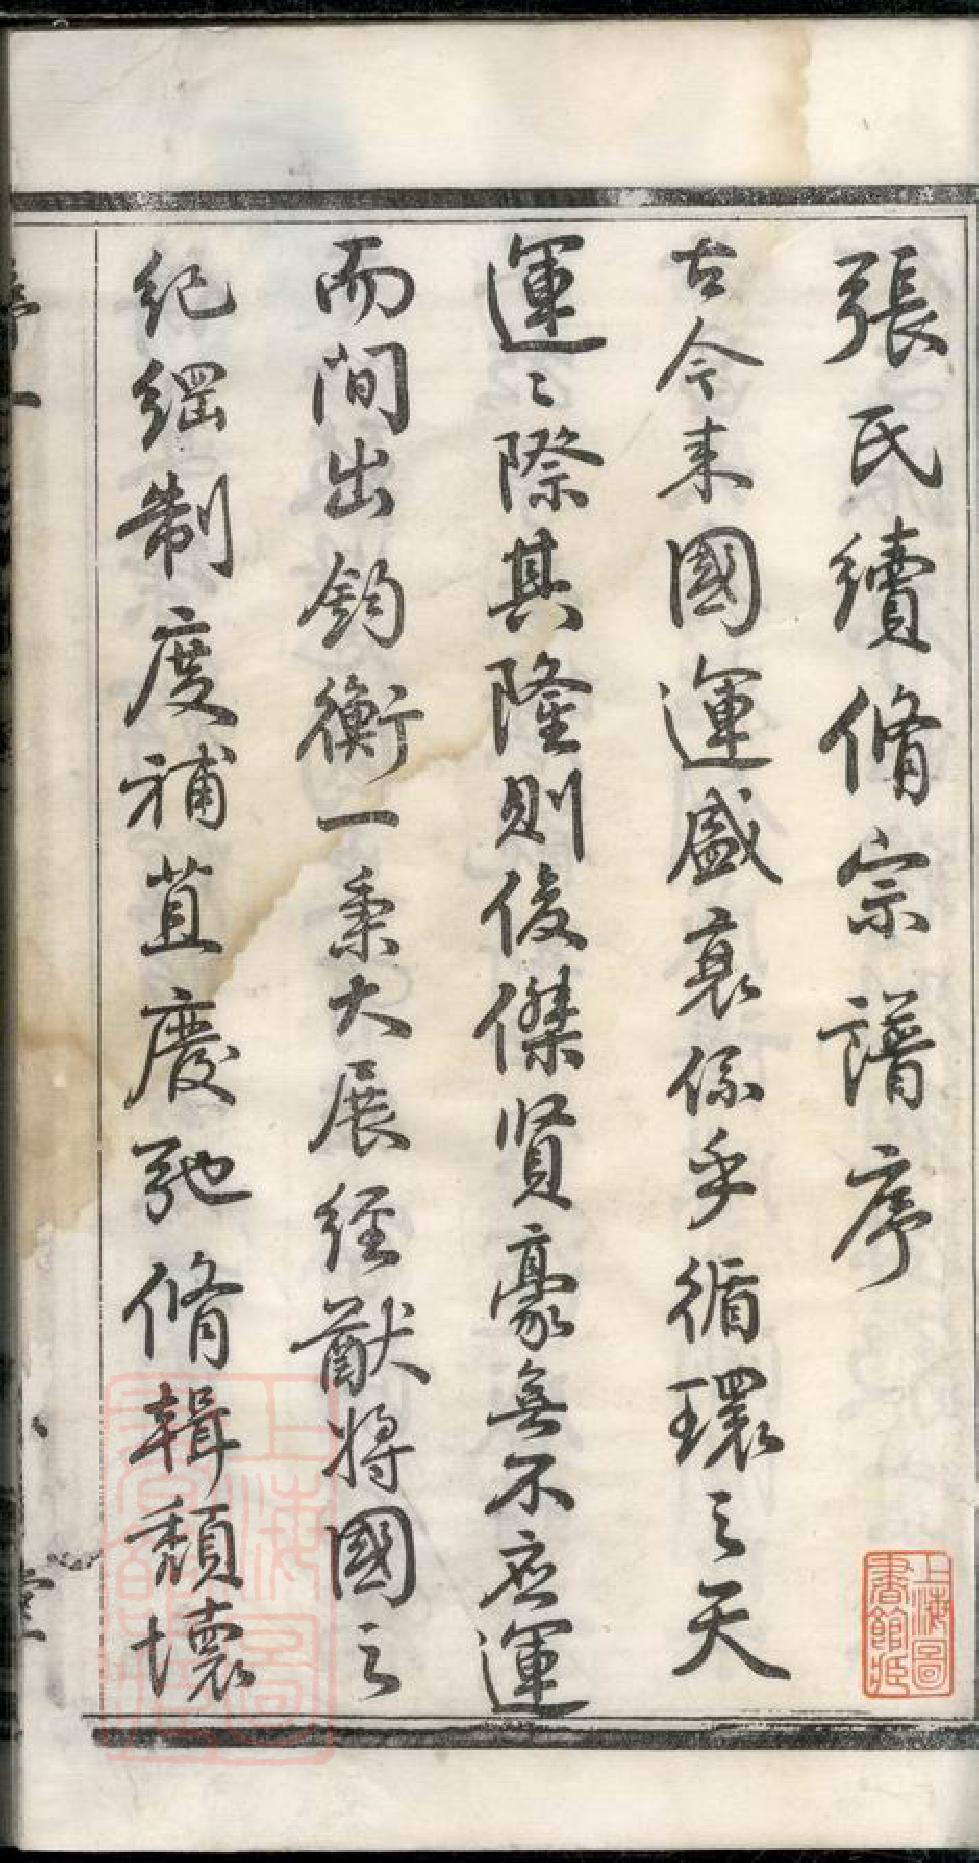 張氏續脩宗譜序
古今來國運盛衰係乎循環之天
運〻際其隆則俊傑賢豪無不應運
而間出鈞衡一秉大展經猷將國之
紀綱制度補苴廢弛脩輯頹壞
序
一
堂
上海圖書館藏